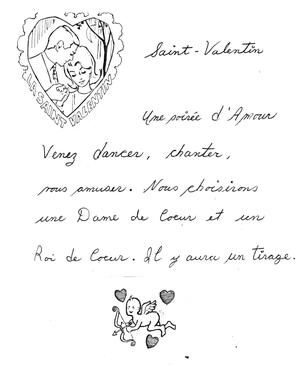 Saint-Valentin
LA SAINT VALENTIN
Une soirée d'Amour
Venez dancer, chanter,
vous amuser. Nous choisirons
une Dame de Coeur et un
Roi de Coeur. Il y aura un tirage.